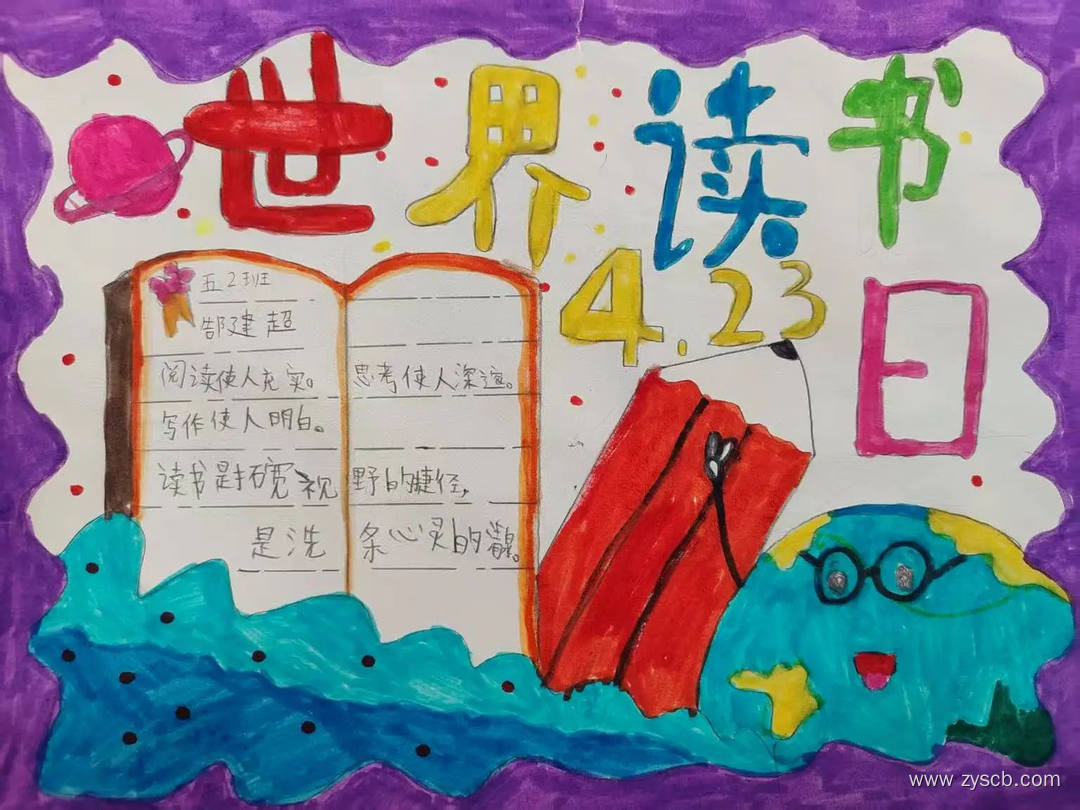 世界读书日
4.23
五2班
郜建超
阅读使人充实。思考使人深邃。
写作使人明白。
读书是拓宽视野的捷径,
是洗条心灵的
www.zyscb.com